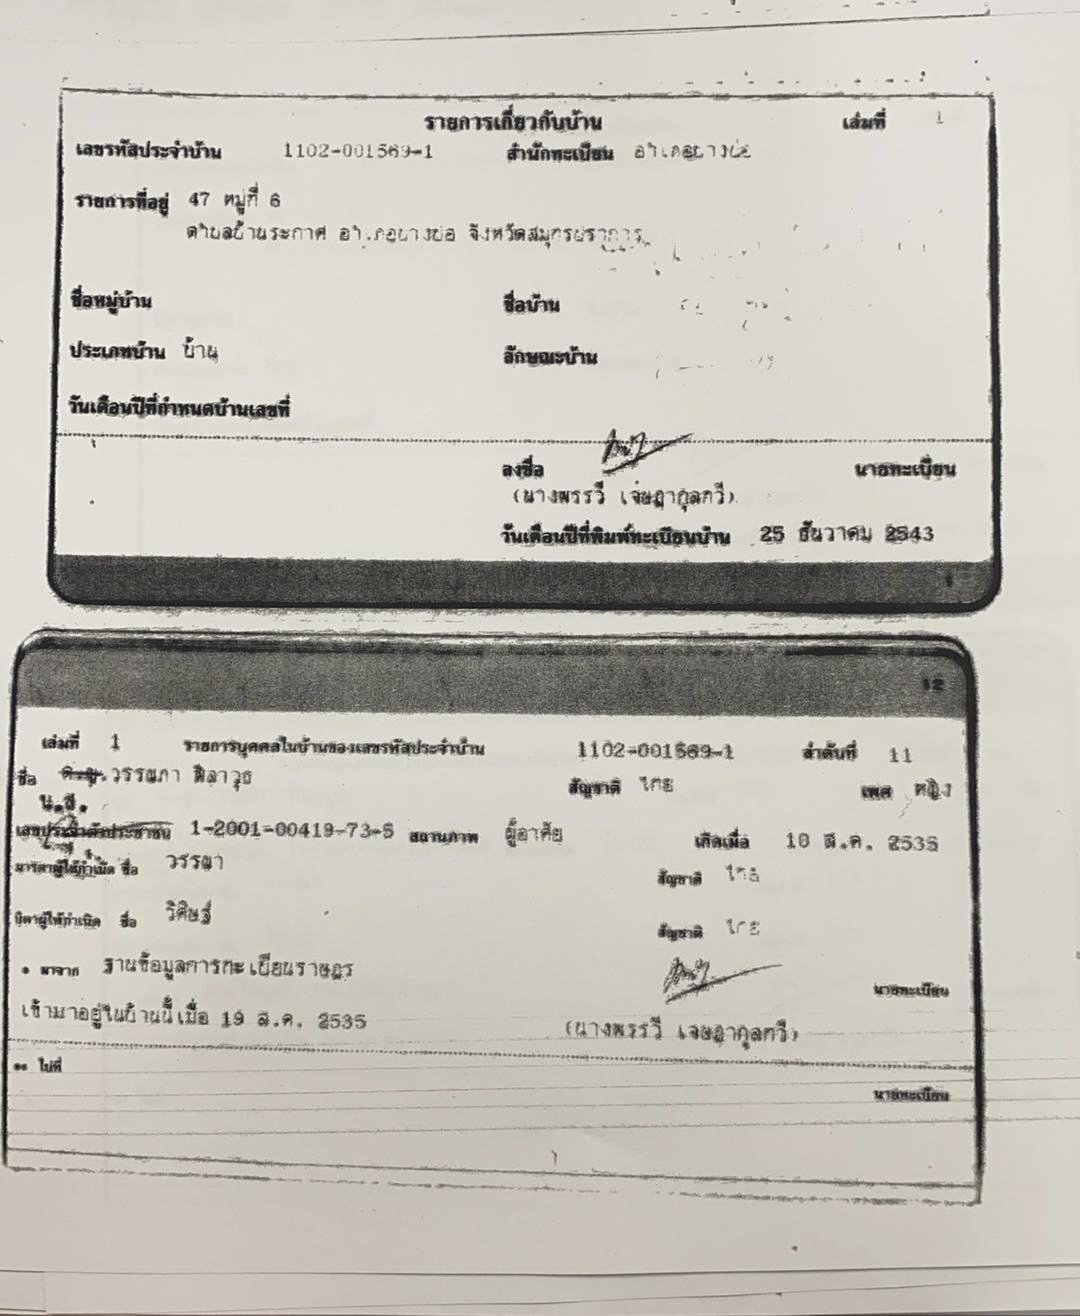 รายการเกี่ยวกับบ้าน เล่มที่ 1
เลขรหัสประจำบ้าน 1102-001569-1 สำนักทะเบียน อำเภอบางบ่อ
รายการที่อยู่ 47 หมู่ที่ 6
ตำบลบ้านระกาศ อำเภอบางบ่อ จังหวัดสมุทรปราการ
ชื่อหมู่บ้าน ชื่อบ้าน
ประเภทบ้าน บ้าน ลักษณะบ้าน
วันเดือนปีที่กำหนดบ้านเลขที่
ลงชื่อ นายทะเบียน
(นางพรรวี เจษฎากุลทวี)
วันเดือนปีที่พิมพ์ทะเบียนบ้าน 25 ธันวาคม 2543
12
เล่มที่ 1 รายการบุคคลในบ้านของเลขรหัสประจำบ้าน 1102-001569-1 ลำดับที่ 11
ชื่อ ด.ญ. วรรณภา ศิลาวุธ สัญชาติ ไทย เพศ หญิง
น.ส.
เลขประจำตัวประชาชน 1-2001-00419-73-5 สถานภาพ ผู้อาศัย เกิดเมื่อ 10 ส.ค. 2535
มารดาผู้ให้กำเนิด ชื่อ วรรณา สัญชาติ ไทย
บิดาผู้ให้กำเนิด ชื่อ วิศิษฐ์ สัญชาติ ไทย
* มาจาก ฐานข้อมูลการทะเบียนราษฎร นายทะเบียน
เข้ามาอยู่ในบ้านนี้เมื่อ 19 ส.ค. 2535 (นางพรรวี เจษฎากุลทวี)
** ไปที่
นายทะเบียน